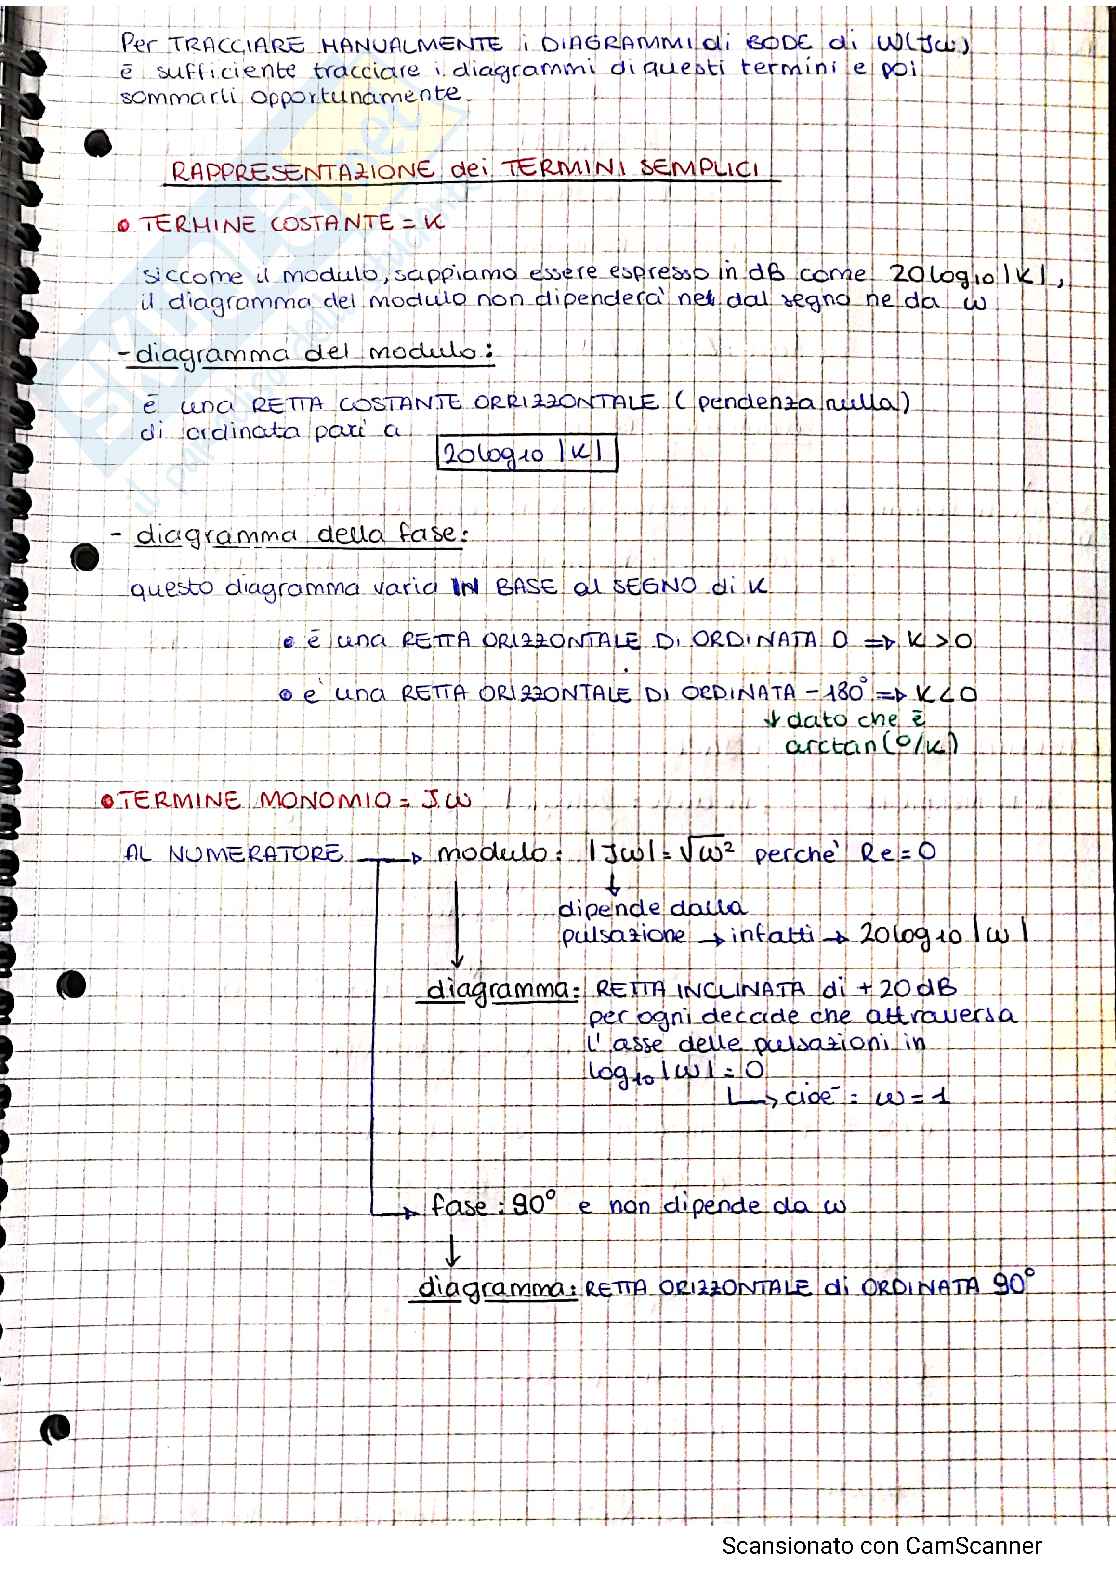 Per TRACCIARE MANUALMENTE i DIAGRAMMI di BODE di W(Jω)
è sufficiente tracciare i diagrammi di questi termini e poi
sommarli opportunamente
RAPPRESENTAZIONE dei TERMINI SEMPLICI
• TERMINE COSTANTE = K
siccome il modulo, sappiamo essere espresso in dB come 20log10|K|,
il diagramma del modulo non dipenderà né dal segno ne da ω
- diagramma del modulo:
è una RETTA COSTANTE ORRIZZONTALE (pendenza nulla)
di ordinata pari a
20log10 |K|
- diagramma della fase:
questo diagramma varia IN BASE al SEGNO di K
• è una RETTA ORIZZONTALE DI ORDINATA 0 => K>0
• è una RETTA ORIZZONTALE DI ORDINATA -180° => K<0
↓ dato che è
arctan(0/K)
• TERMINE MONOMIO = Jω
AL NUMERATORE → modulo: |Jω| = √ω² perche' Re=0
↓
dipende dalla
pulsazione → infatti → 20log10 |ω|
diagramma: RETTA INCLINATA di +20dB
per ogni decade che attraversa
l'asse delle pulsazioni in
log10 |ω| = 0
↳ cioè: ω=1
→ fase: 90° e non dipende da ω
↓
diagramma: RETTA ORIZZONTALE di ORDINATA 90°
Scansionato con CamScanner